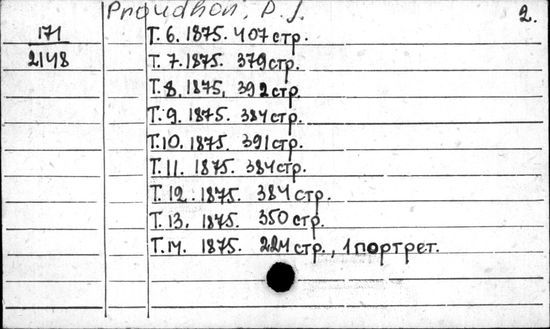 Proudhon, P. J. 2.
171 Т. 6. 1875. 407 стр.
2148 Т. 7. 1875. 379 стр.
Т. 8. 1875. 392 стр.
Т. 9. 1875. 384 стр.
Т. 10. 1875. 391 стр.
Т. 11. 1875. 384 стр.
Т. 12. 1875. 384 стр.
Т. 13. 1875. 350 стр.
Т. 14. 1875. 224 стр., 1 портрет.